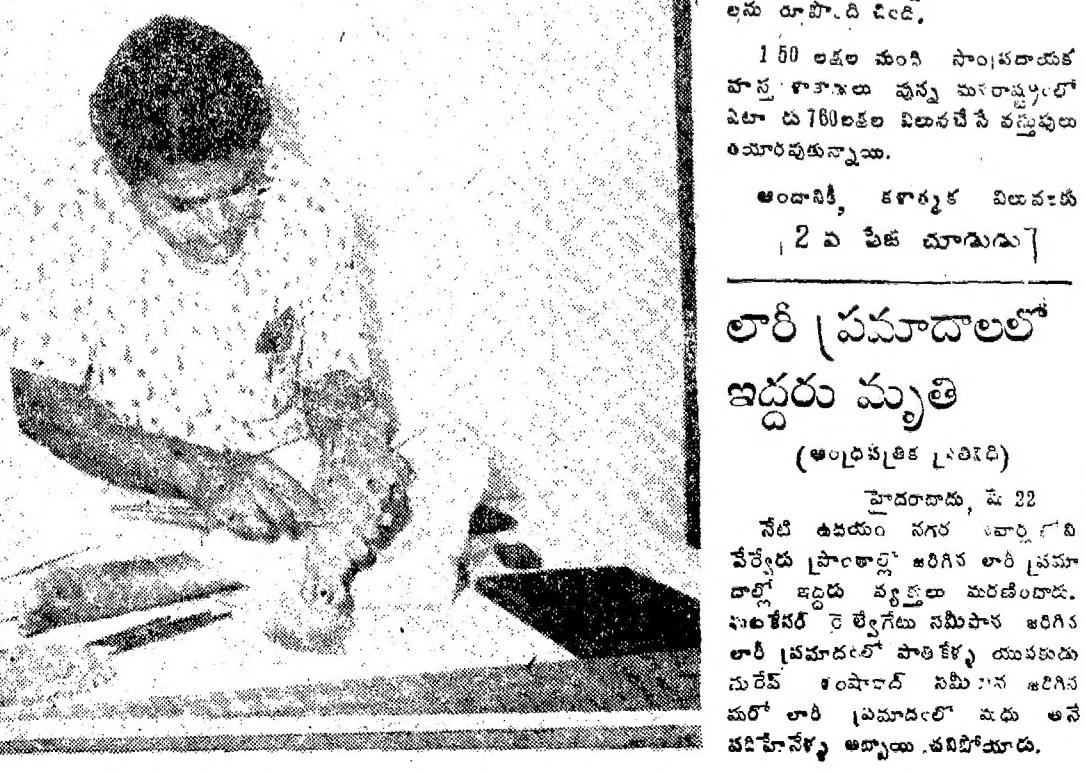 లను రూపొందించింది.
150 లక్షల మంది సాంప్రదాయక
హస్త కళాకారులు వున్న మహారాష్ట్రంలో
ఏటా రు 760 లక్షల విలువచేసే వస్తువులు
తయారవుతున్నాయి.
అందానికీ, కళాత్మక విలువలకు
[2 వ పేజి చూడుడు]
లారీ ప్రమాదాలలో
ఇద్దరు మృతి
(ఆంధ్రపత్రిక ప్రతినిధి)
హైదరాబాదు, మే 22
నేటి ఉదయం నగర
వేర్వేరు ప్రాంతాల్లో జరిగిన లారీ ప్రమా
దాల్లో ఇద్దరు వ్యక్తులు మరణించారు.
రైల్వేగేటు సమీపాన జరిగిన
లారీ ప్రమాదంలో పాతికేళ్ళ యువకుడు
సురేష్ శంషాబాద్ సమీపాన జరిగిన
మరో లారీ ప్రమాదంలో మధు అనే
పదిహేనేళ్ళ అబ్బాయి చనిపోయాడు.